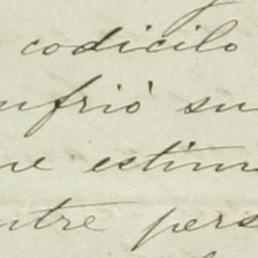 codicilo
ufrió su
ue estim
ntre pers